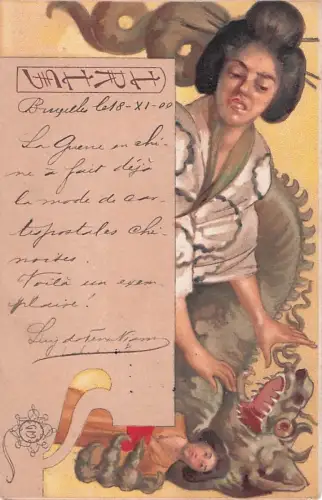 Bruxelles le 18-XI-00
La Guerre en chi-
ne a fait déjà
la mode de car-
tes postales chi-
noises.
Voilà un exem-
plaire!